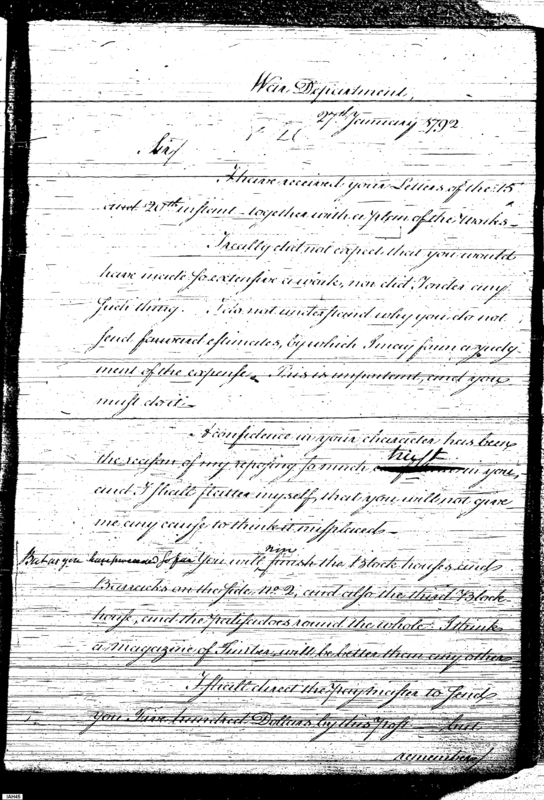 War Department,
27th January 1792
Sir/
I have received your Letters of the 15
and 20th instant - together with a plan of the Works -
I really did not expect that you would
have made so extensive a work, nor did I order any
such thing. I do not understand why you do not
send forward estimates, by which I may form a judg
ment of the expense. This is important, and you
must do it -
A confidence in your character has been
the reason of my reposing so much trust in you,
and I shall flatter myself, that you will not give
me any cause to think it misplaced -
But as you have proceeded so far You will now finish the Block houses and
Barracks on the side, No. 2, and also the third Block
house, and the palisadoes round the whole. I think
a magazine of Timber, will be better than any other
I shall direct the paymaster to send
you Five hundred Dollars by this Post - but
remember/
IAH48